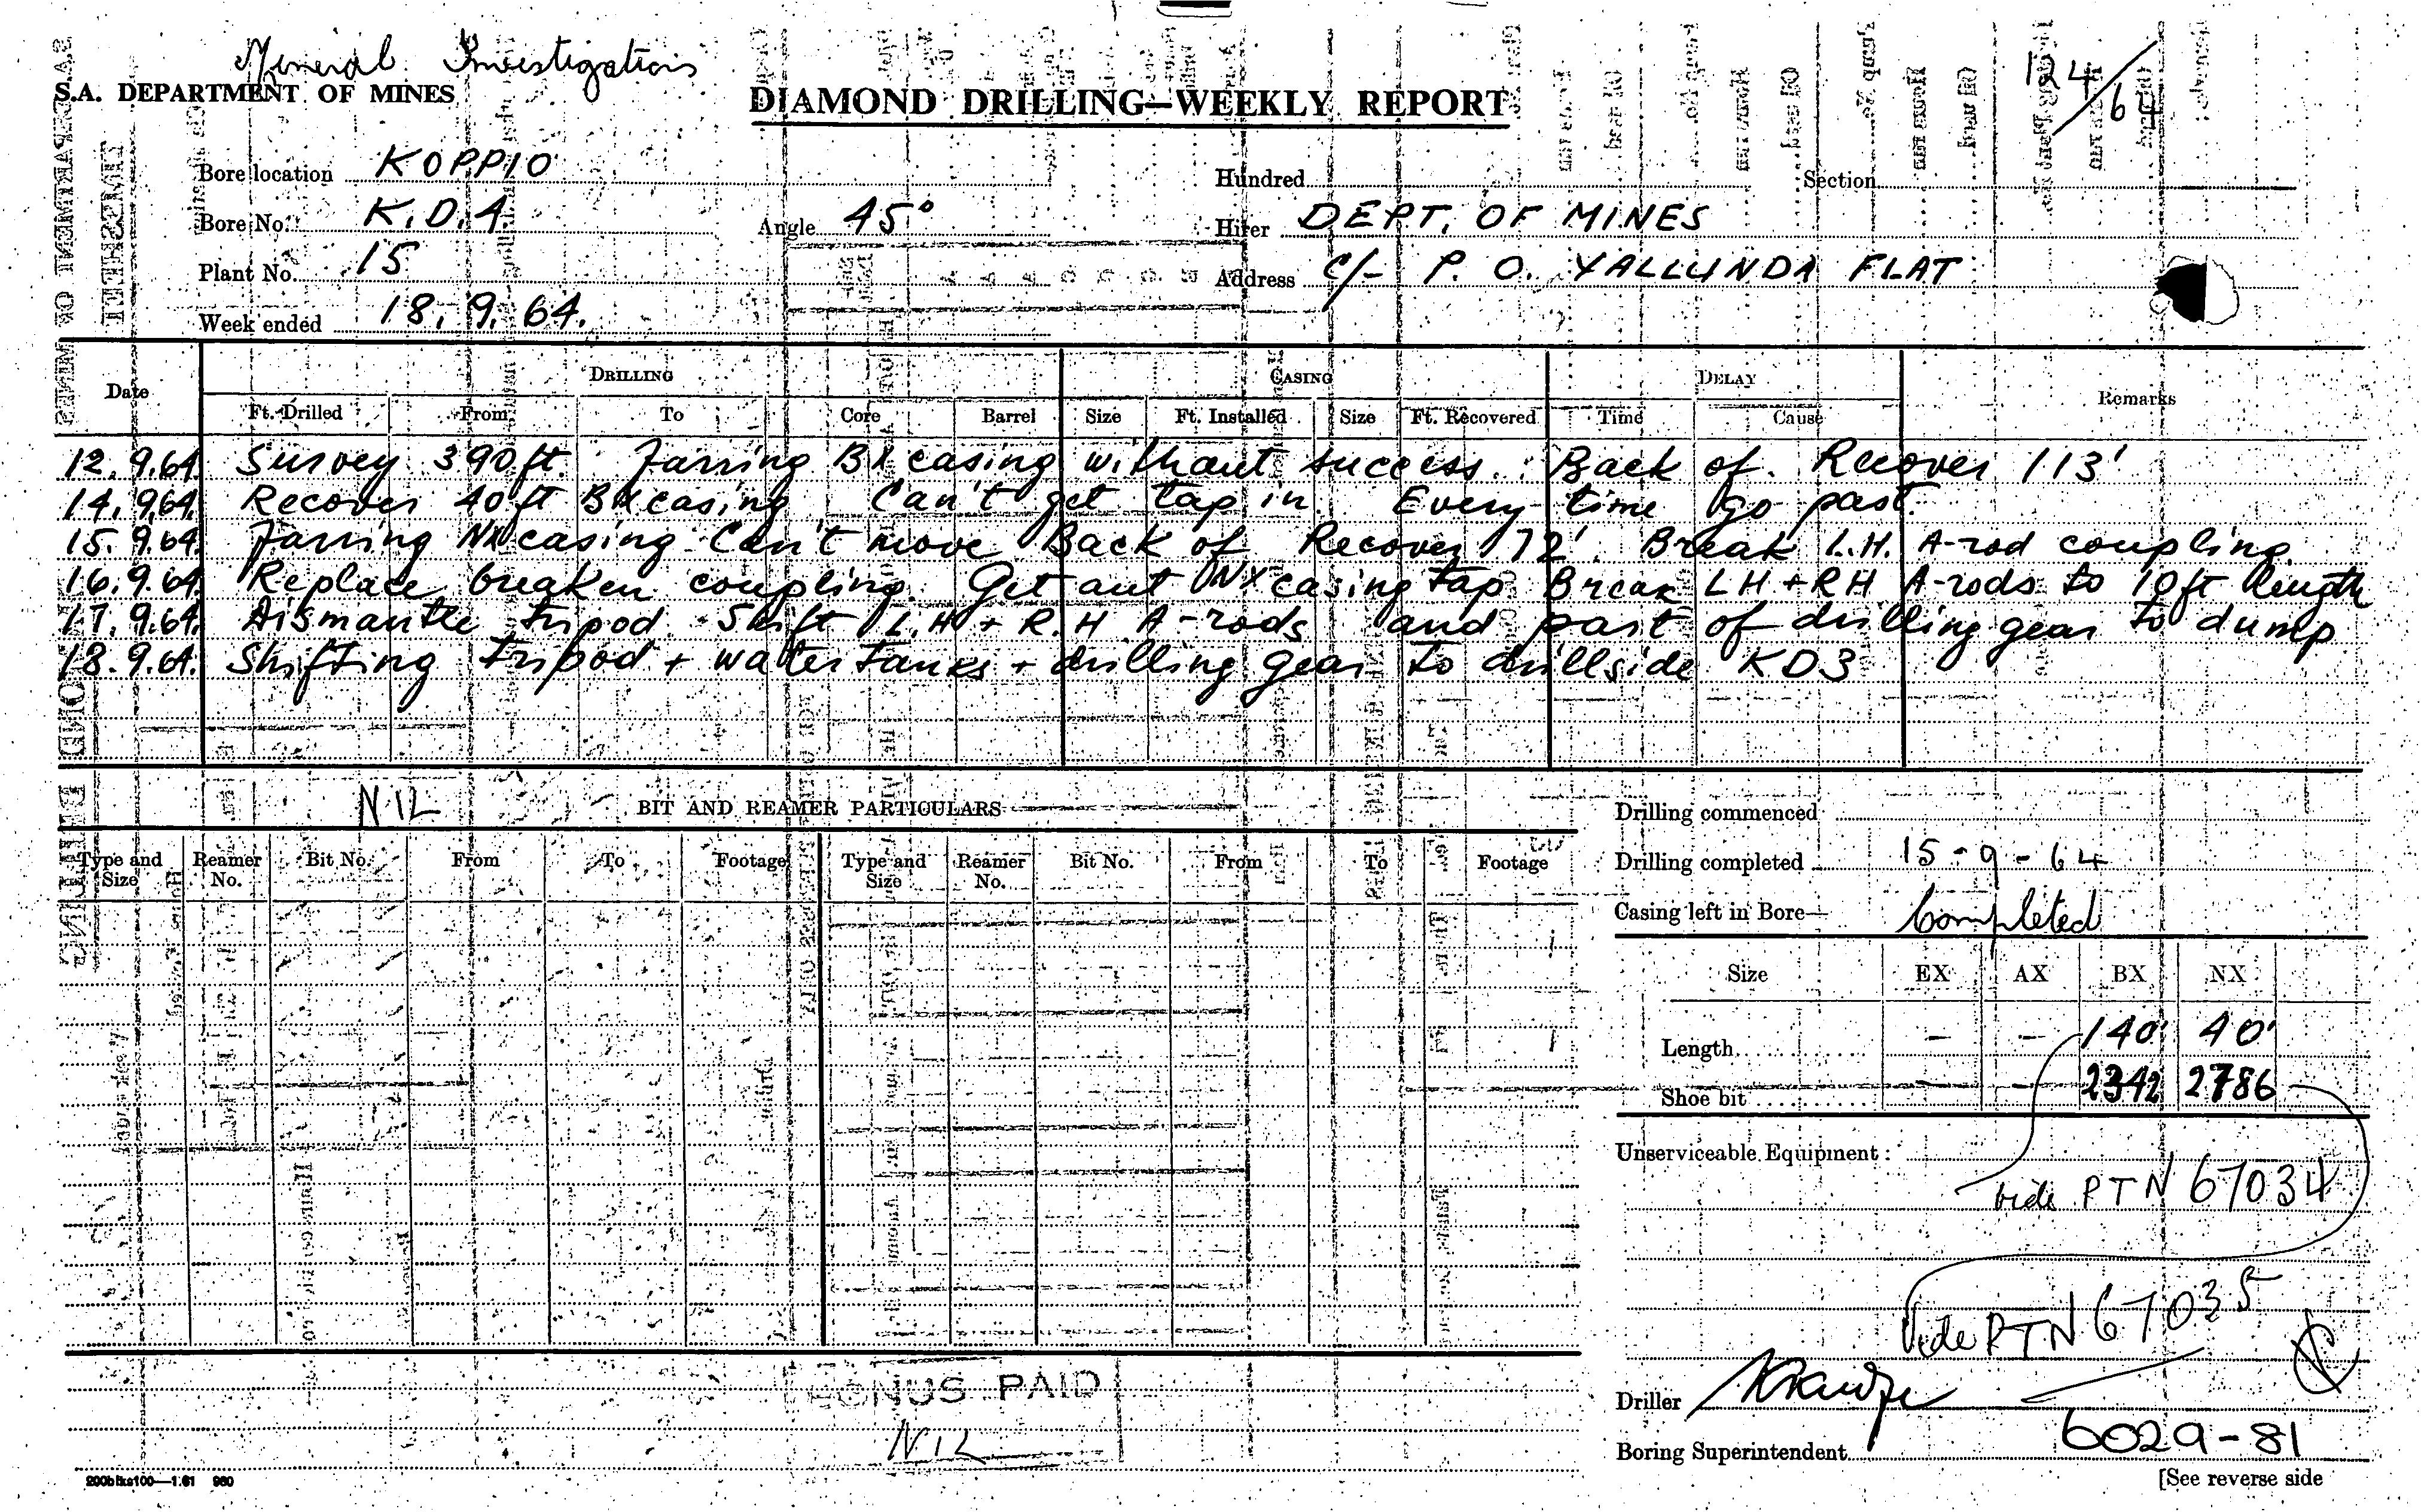 Mineral Investigations
S.A. DEPARTMENT OF MINES
DIAMOND DRILLING—WEEKLY REPORT
124/64
Bore location KOPPIO
Hundred Section
Bore No. K.D.4.
Angle 45°
Hirer DEPT. OF MINES
Plant No. 15
Address C/- P.O. YALLUNDA FLAT
Week ended 18.9.64.
Date DRILLING CASING DELAY Remarks
Ft. Drilled From To Core Barrel Size Ft. Installed Size Ft. Recovered Time Cause
12.9.64 Survey 390 ft. Jarring BX casing without success. Back of. Recover 113'
14.9.64. Recover 40 ft BX casing Can't get tap in. Every time go past.
15.9.64. Jarring NX casing Can't move Back of Recover 72'. Break L.H. A-rod coupling.
16.9.64. Replace breaken coupling. Get aut NX casing tap Break LH + RH A-rods to 10ft length
17.9.64. Dismantle tripod. Shift L.H + R.H A-rods and part of drilling gear to dump
18.9.64. Shifting tripod + water tanks + drilling gear to drillside KD3
NIL
BIT AND REAMER PARTICULARS
Drilling commenced
Type and Size Reamer No. Bit No. From To Footage Type and Size Reamer No. Bit No. From To Footage
Drilling completed 15-9-64
Casing left in Bore— Completed
Size EX AX BX NX
Length - - 140' 40'
Shoe bit - - 2342 2786
Unserviceable Equipment :
vide PTN 67034
Vide PTN 67035
BONUS PAID
NIL
Driller Krauze
Boring Superintendent
6029-81
200bks100—1.61 960
[See reverse side